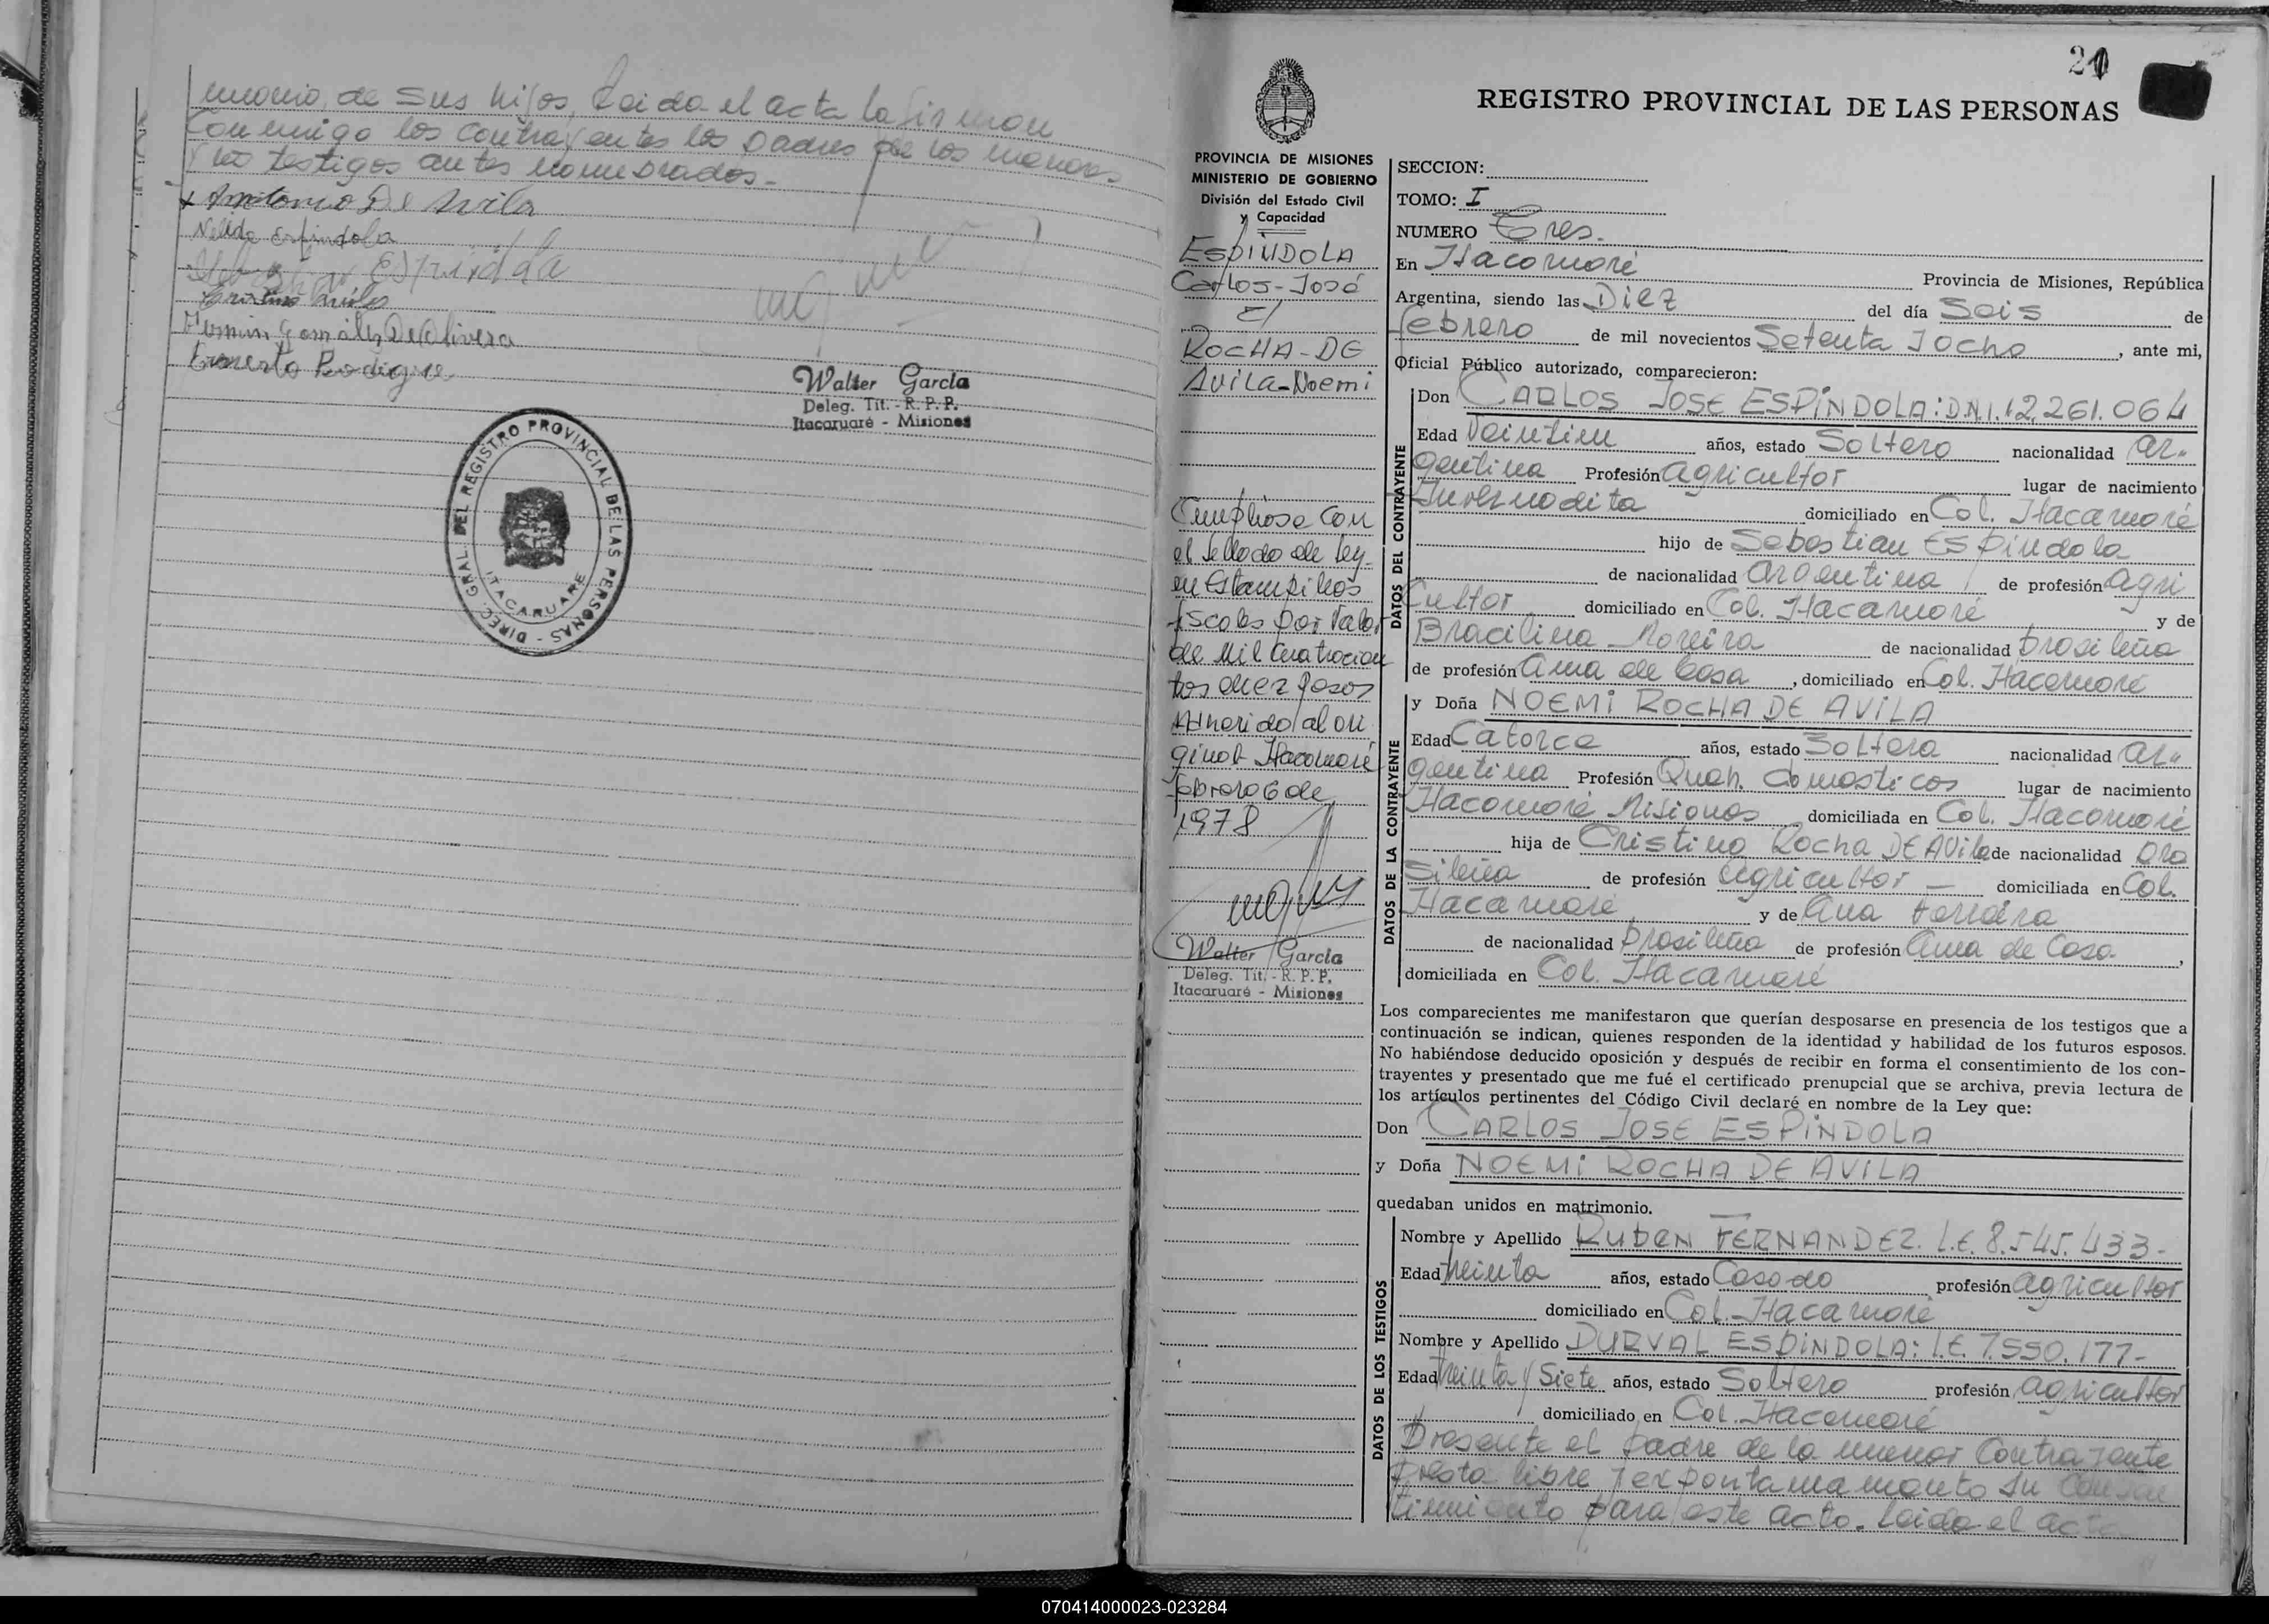 monio de sus hijos, Leida el acta la firman
Conmigo los contrayentes los padres de los menores
y los testigos antes nombrados.-
x Antonio De Avila
Nelida Espindola
Espindola
Cristino Avila
Gonzalez De Olivera
Ernesto Rodigue
Walter García
Deleg. Tit. - R. P. P.
Itacaruaré - Misiones
DIREC. GRAL. DEL REGISTRO PROVINCIAL DE LAS PERSONAS -
ITACARUARE
21
REGISTRO PROVINCIAL DE LAS PERSONAS
PROVINCIA DE MISIONES
MINISTERIO DE GOBIERNO
División del Estado Civil
y Capacidad
ESPINDOLA
Carlos-José
ROCHA-DE
Avila-Noemi
Cumpliose con
el sellado de ley-
en Estampillas
fiscales por valor
de Mil Cuatrocien
tos diez pesos
Adherido al ori
ginal Itacaruaré
febrero 6 de
1978
Walter García
Deleg. Tit. - R. P. P.
Itacaruaré - Misiones
SECCION:
TOMO: I
NUMERO Tres.-
En Itacaruaré Provincia de Misiones, República
Argentina, siendo las Diez del día Seis de
febrero de mil novecientos Setenta y ocho, ante mi,
Oficial Público autorizado, comparecieron:
DATOS DEL CONTRAYENTE
Don CARLOS JOSE ESPINDOLA: D.N.I. 12.261.064
Edad Veintiun años, estado Soltero nacionalidad Ar-
gentina Profesión agricultor lugar de nacimiento
domiciliado en Col. Itacaruaré
hijo de Sebastian Espindola
de nacionalidad argentina de profesión agri
cultor domiciliado en Col. Itacaruaré y de
Bracilina Moreira de nacionalidad brasileña
de profesión ama de Casa, domiciliado en Col. Itacaruaré
DATOS DE LA CONTRAYENTE
y Doña NOEMI ROCHA DE AVILA
Edad Catorce años, estado Soltera nacionalidad Ar-
gentina Profesión Queh. domesticos lugar de nacimiento
Itacaruaré Misiones domiciliada en Col. Itacaruaré
hija de Cristino Rocha DE AVila de nacionalidad bra
sileña de profesión agricultor - domiciliada en Col.
Itacaruaré y de Ana Ferreira
de nacionalidad brasileña de profesión ama de Casa,
domiciliada en Col. Itacaruaré
Los comparecientes me manifestaron que querían desposarse en presencia de los testigos que a
continuación se indican, quienes responden de la identidad y habilidad de los futuros esposos.
No habiéndose deducido oposición y después de recibir en forma el consentimiento de los con-
trayentes y presentado que me fué el certificado prenupcial que se archiva, previa lectura de
los artículos pertinentes del Código Civil declaré en nombre de la Ley que:
Don CARLOS JOSE ESPINDOLA
y Doña NOEMI ROCHA DE AVILA
quedaban unidos en matrimonio.
DATOS DE LOS TESTIGOS
Nombre y Apellido RUBEN FERNANDEZ. L.E. 8.545.433-
Edad treinta años, estado Casado profesión agricultor
domiciliado en Col. Itacaruaré
Nombre y Apellido DURVAL ESPINDOLA: L.E. 7.550.177-
Edad treinta y Siete años, estado Soltero profesión agricultor
domiciliado en Col. Itacaruaré
Presente el padre de la menor Contrayente
presta libre y expontaneamente su Consen
timiento para este acto. Leida el acta
070414000023-023284